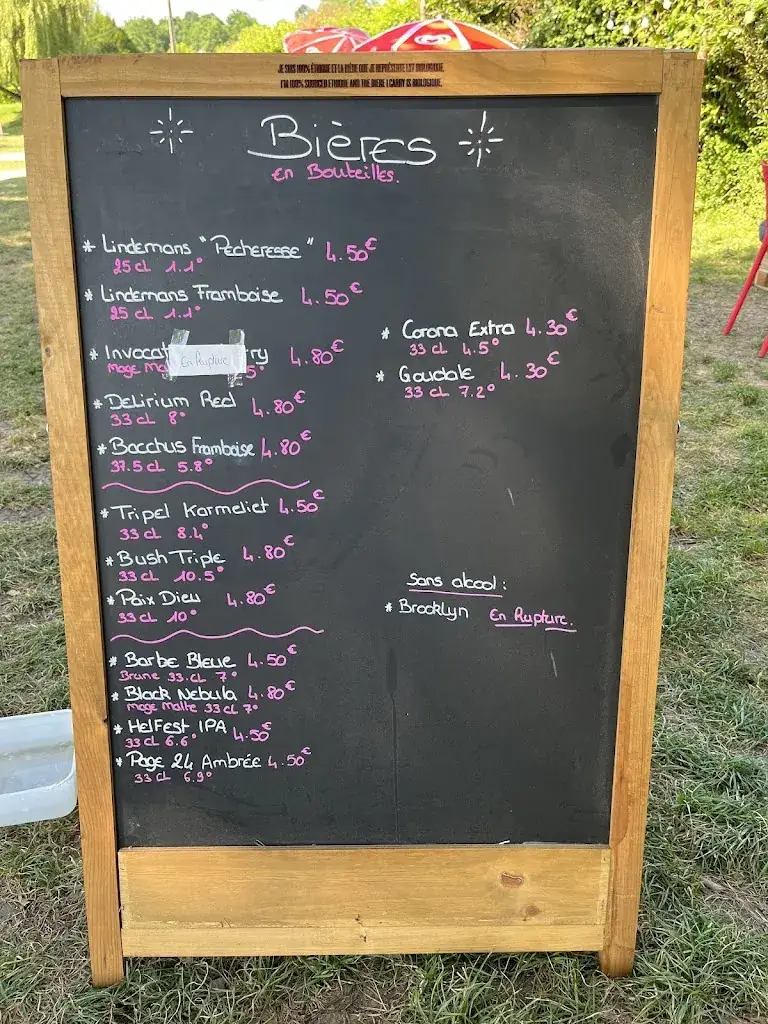 JE SUIS 100% ÉTHIQUE ET LA BIÈRE QUE JE REPRÉSENTE EST BIOLOGIQUE.
I'M 100% SOURCED ETHIQUE AND THE BIERE I CARRY IS BIOLOGIQUE.
Bières
en Bouteilles.
* Lindemans "Pecheresse" 4.50€
25 cl 1.1°
* Lindemans Framboise 4.50€
25 cl 1.1°
* Invocat En Rupture rry 4.80€
mage Mal 5°
* Delirium Red 4.80€
33 cl 8°
* Bacchus Framboise 4.80€
37.5 cl 5.8°
* Tripel Karmeliet 4.50€
33 cl 8.4°
* Bush Triple 4.80€
33 cl 10.5°
* Paix Dieu 4.80€
33 cl 10°
* Barbe Bleue 4.50€
Brune 33.cl 7°
* Black Nebula 4.80€
mage Malte 33 cl 7°
* HelFest IPA 4.50€
33 cl 6.6°
* Page 24 Ambrée 4.50€
33 cl 6.9°
* Corona Extra 4.30€
33 cl 4.5°
* Goudale 4.30€
33 cl 7.2°
Sans alcool :
* Brooklyn En Rupture.